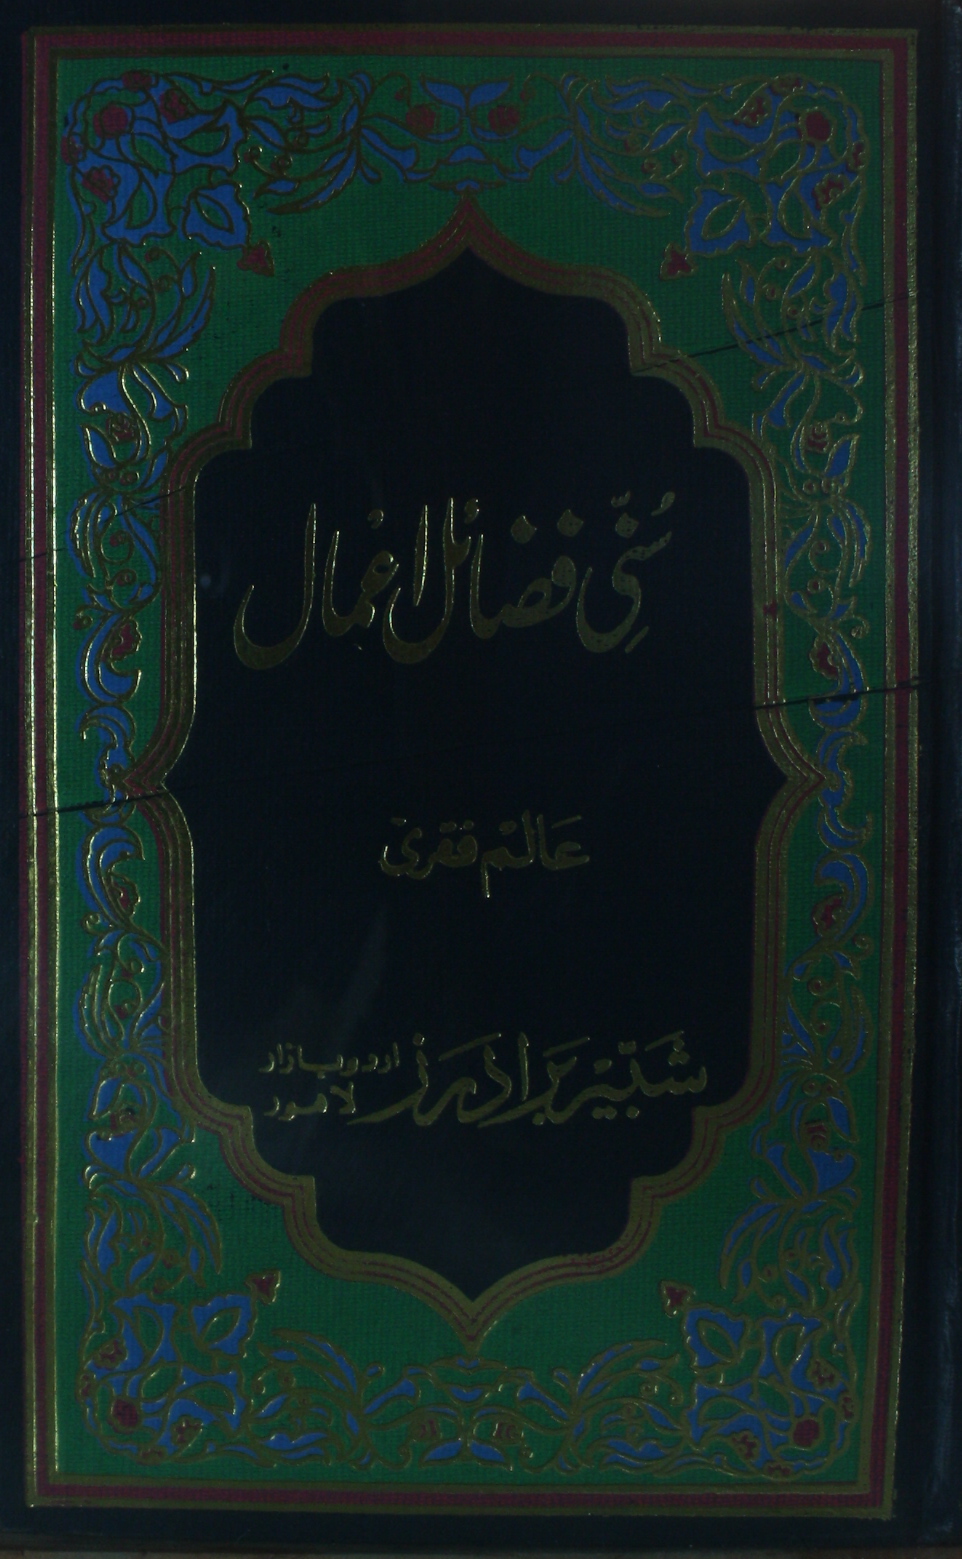 سُنّی فضائل اعمال
عالم فقری
شبّیر برادرز اردو بازار
لاہور